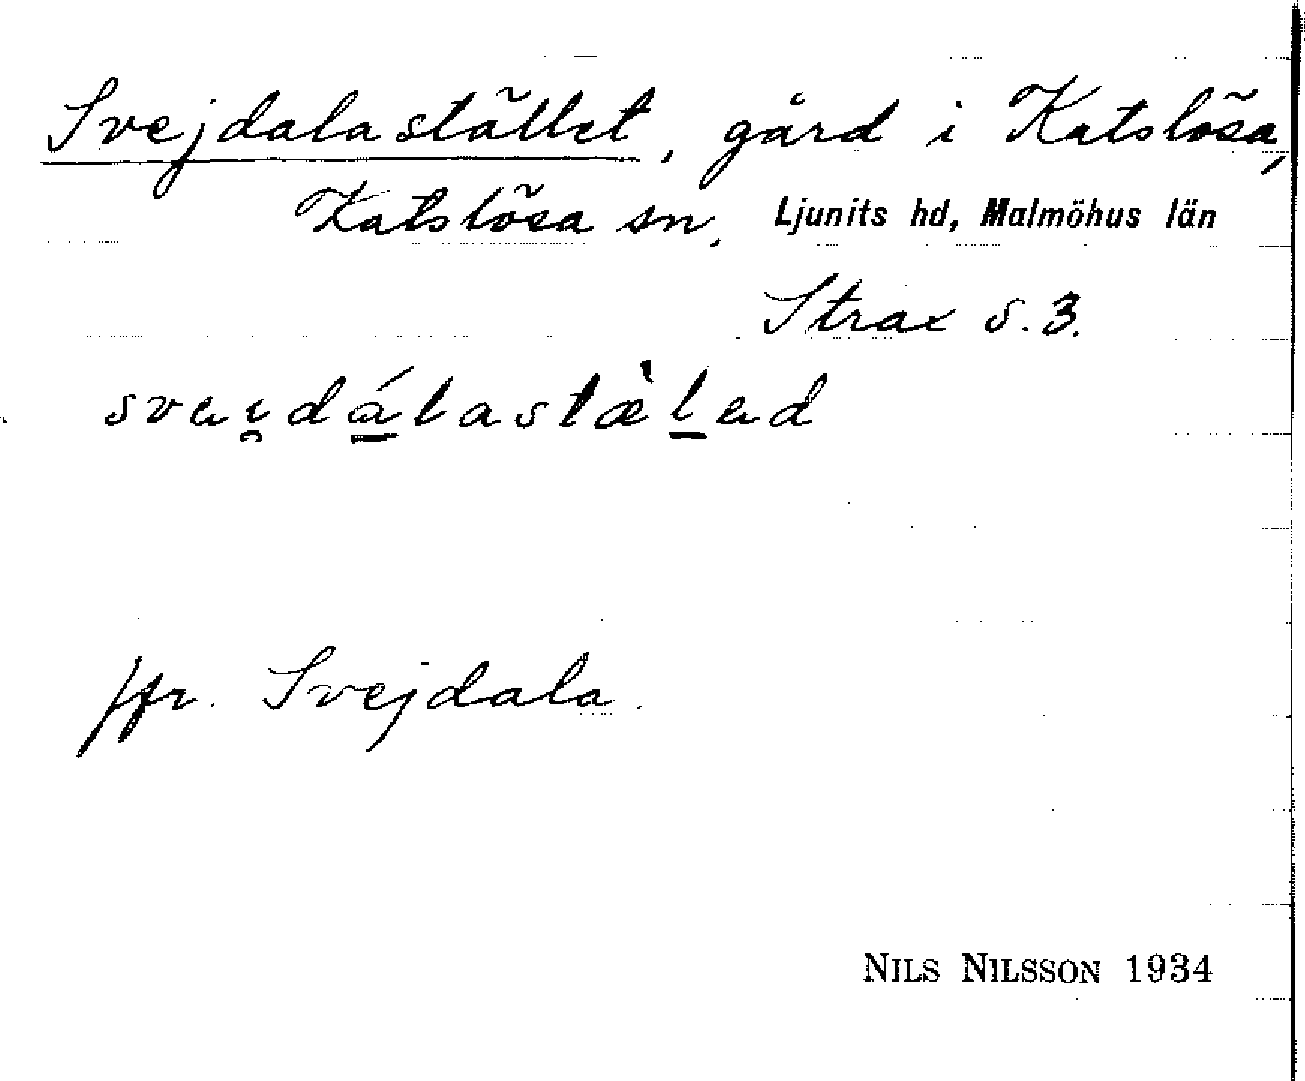 Svejdalastället, gård i Katslösa,
Katslösa sn, Ljunits hd, Malmöhus län
Strax s. 3.
sveı̯dálastæ̀led
Jfr. Svejdala.
NILS NILSSON 1934